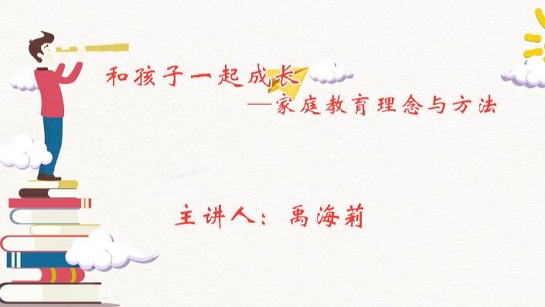 和孩子一起成长
—家庭教育理念与方法
主讲人：禹海莉